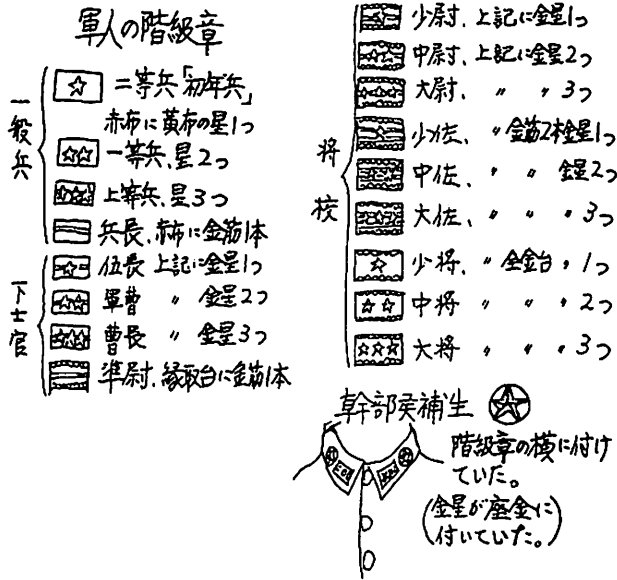 軍人の階級章
一般兵
二等兵「初年兵」
赤布に黄布の星1つ
一等兵、星2つ
上等兵、星3つ
兵長、赤布に金筋1本
下士官
伍長 上記に金星1つ
軍曹 〃 金星2つ
曹長 〃 金星3つ
準尉、縁取台に金筋1本
将校
少尉、上記に金星1つ
中尉、上記に金星2つ
大尉、〃 〃 3つ
少佐、〃 金筋2本金星1つ
中佐、〃 〃 金星2つ
大佐、〃 〃 〃 3つ
少将、〃 全金台 〃 1つ
中将 〃 〃 〃 2つ
大将 〃 〃 〃 3つ
幹部候補生
階級章の横に付け
ていた。
(金星が座金に
付いていた。)